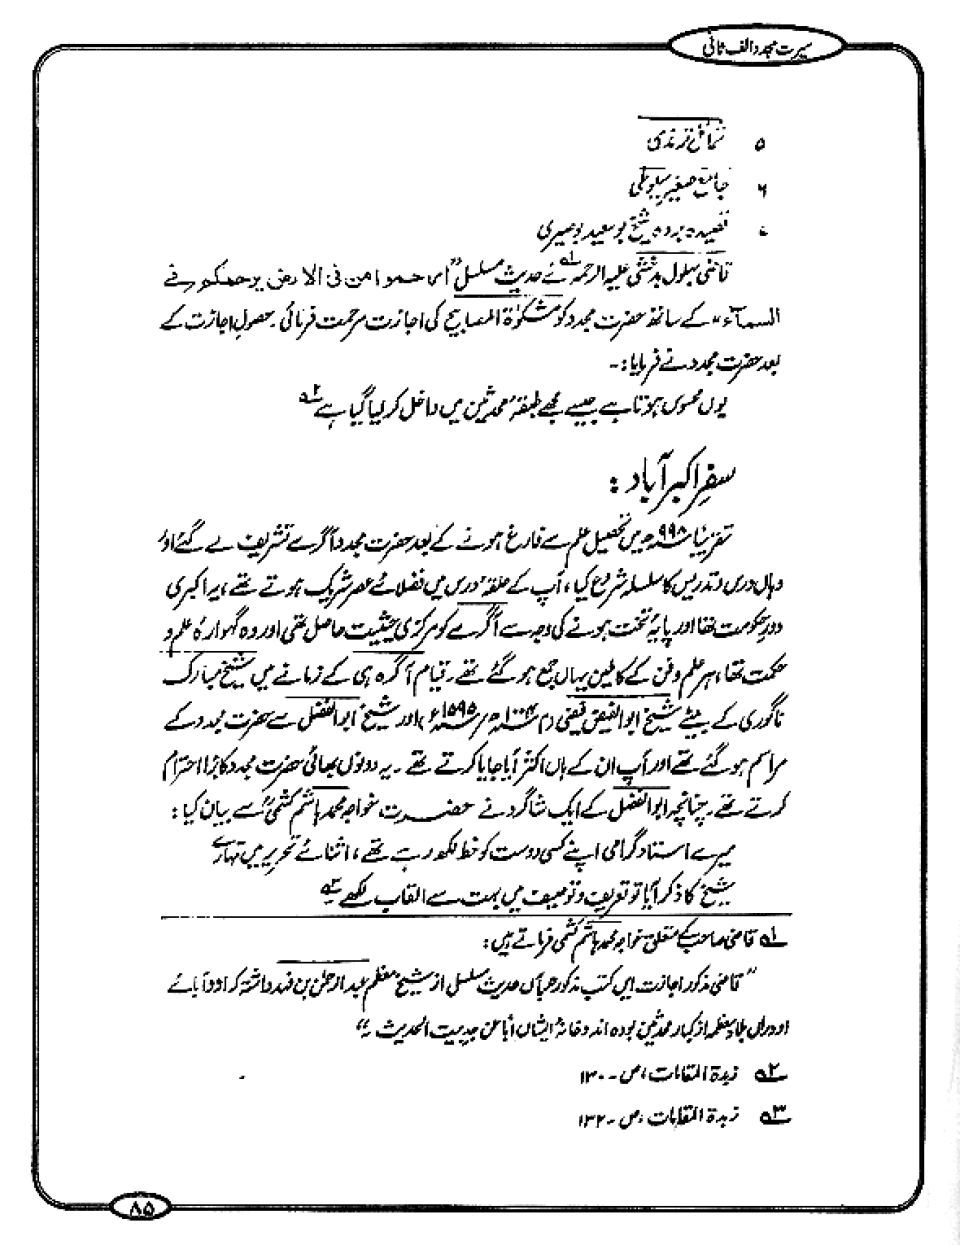 سیرت مجدد الف ثانی
۵ شمائل ترمذی
۶ جامع صغیر سیوطی
۷ قصیدہ بردہ شیخ بوسعید بوصیری
قاضی بہلول بدخشی علیہ الرحمہ ؎۱ نے حدیث مسلسل "ارحموا من فی الارض یرحمکم من فی
السمآء" کے ساتھ حضرت مجدد کو مشکوٰۃ المصابیح کی اجازت مرحمت فرمائی۔ حصولِ اجازت کے
بعد حضرت مجدد نے فرمایا:۔
یوں محسوس ہوتا ہے جیسے مجھے طبقۂ محدثین میں داخل کر لیا گیا ہے ؎۲
سفرِ اکبر آباد :
تقریباً ۹۹۸ھ میں تحصیل علم سے فارغ ہونے کے بعد حضرت مجدد آگرے تشریف لے گئے اور
وہاں درس و تدریس کا سلسلہ شروع کیا، آپ کے حلقۂ درس میں فضلائے عصر شریک ہوتے تھے، یہ اکبری
دورِ حکومت تھا اور پایۂ تخت ہونے کی وجہ سے آگرے کو مرکزی حیثیت حاصل تھی اور وہ گہوارۂ علم و
حکمت تھا، ہر علم و فن کے کاملین یہاں جمع ہو گئے تھے۔ قیام آگرہ ہی کے زمانے میں شیخ مبارک
ناگوری کے بیٹے شیخ ابوالفیض فیضی (م ۱۰۰۴ھ/۱۵۹۵ء) اور شیخ ابوالفضل سے حضرت مجدد کے
مراسم ہو گئے تھے اور آپ ان کے ہاں اکثر آیا جایا کرتے تھے۔ یہ دونوں بھائی حضرت مجدد کا بڑا احترام
کرتے تھے۔ چنانچہ ابوالفضل کے ایک شاگرد نے حضرت خواجہ محمد ہاشم کشمی سے بیان کیا:
میرے استاد گرامی اپنے کسی دوست کو خط لکھ رہے تھے، اثنائے تحریر میں تمہارے
شیخ کا ذکر آیا تو تعریف و توصیف میں بہت سے القاب لکھے ؎۳
؎۱ قاضی صاحب کے متعلق خواجہ محمد ہاشم کشمی فرماتے ہیں:
"قاضی مذکور اجازت ایں کتب مذکورہ باں حدیث مسلسل از شیخ معظم عبدالرحمٰن بن فہد داشتہ کہ او و آبائے
او دراں بلاد معظمہ از کبار محدثین بودہ اند و خانۂ ایشاں اباً عن جد بیت الحدیث۔"
؎۲ زبدۃ المقامات، ص۔۱۳۰
؎۳ زبدۃ المقامات، ص۔۱۳۲
۸۵